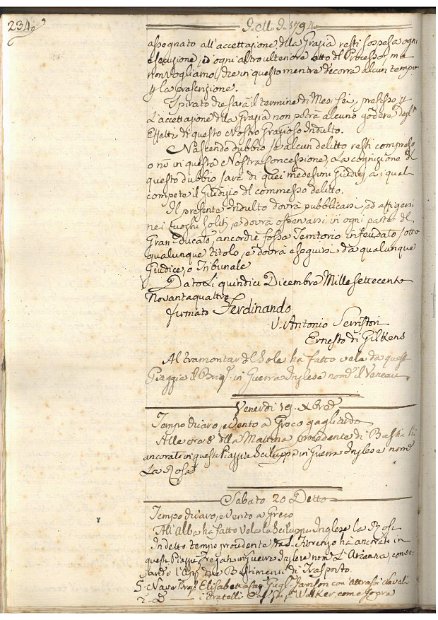 234
assegnato all'accettazione della Grazia resti sospesa ogni
esecuzione, ed ogni altro ulteriore atto di Processo, ma
non vogliamo, che in questo mentre decorra alcun tempo
per la prescrizione.
Spirato che sarà il termine di Mesi sei, prefisso per
l'accettazione della Grazia non potrà alcuno godere degl'
Effetti di questo Nostro grazioso Indulto.
Nascendo dubbio, se alcun delitto resti compreso
o nò in questa Nostra Concessione, la cognizione di
questo dubbio sarà di quei medesimi Giudici, ai quali
compete il Giudizio del commesso delitto.
Il presente Indulto dovrà pubblicarsi, ed affigersi
nei Luoghi soliti, e dovrà osservarsi in ogni parte del
Gran-Ducato, ancorchè fosse Territorio infeudato sotto
qualunque titolo, e dovrà eseguirsi da qualunque
Giudice, o Tribunale
Dato li quindici Dicembre Mille settecento
Novantaquattro
firmato Ferdinando
V. Antonio Serristori
Ernesto di Gilkens
Al tramontar del Sole ha fatto vela da questa
Piaggia il Brig. in Guerra Inglese nom.
Venerdi 19. Xbre
Tempo chiaro, e vento a Greco gagliardo
Alle ore 8 della Mattina proveniente di Bastia hà
ancorato in questa Piaggia Sciluppa in Guerra Inglese nom.
La Rosa
Sabato 20 Detto
Tempo chiaro, e vento a Greco
All'Alba ha fatto vela la Sciluppa Inglese La Rosa
In detto tempo proveniente da S. Fiorenzo hà ancorato in
questa Piaggia Fregata in Guerra Inglese nom.
Bastimenti di Trasporto
Nave Elisabetta
Fratelli Walker come sopra